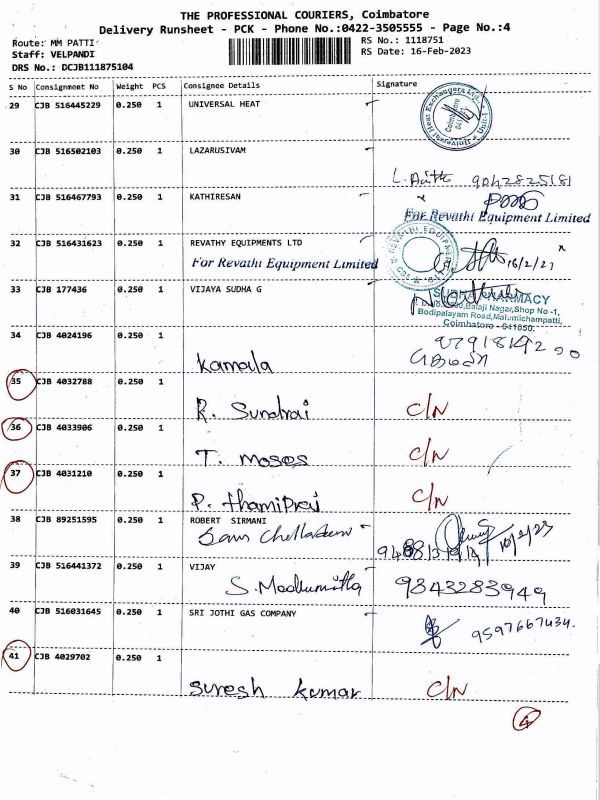 THE PROFESSIONAL COURIERS, Coimbatore
Delivery Runsheet - PCK - Phone No.:0422-3505555 - Page No.:4
Route: MM PATTI
RS No.: 1118751
Staff: VELPANDI
RS Date: 16-Feb-2023
DRS No.: DCJB111875104
S No Consignment No Weight PCS Consignee Details Signature
29 CJB 516445229 0.250 1 UNIVERSAL HEAT
30 CJB 516502103 0.250 1 LAZARUSIVAM
31 CJB 516467793 0.250 1 KATHIRESAN
For Revathi Equipment Limited
32 CJB 516431623 0.250 1 REVATHY EQUIPMENTS LTD
For Revathi Equipment Limited 16/2/23
33 CJB 177436 0.250 1 VIJAYA SUDHA G
PHARMACY
Balaji Nagar,Shop No -1,
Bodipalayam Road,Malumichampatti,
Coimbatore - 641050.
34 CJB 4024196 0.250 1
Kamala
35 CJB 4032788 0.250 1
R. Sundrai C/N
36 CJB 4033906 0.250 1
T. moses C/N
37 CJB 4031210 0.250 1
P. thamiprai C/N
38 CJB 89251595 0.250 1 ROBERT SIRMANI
16/2/23
39 CJB 516441372 0.250 1 VIJAY
S. Madhumitha 9843283949
40 CJB 516031645 0.250 1 SRI JOTHI GAS COMPANY
9597667434.
41 CJB 4029702 0.250 1
suresh kumar C/N
4